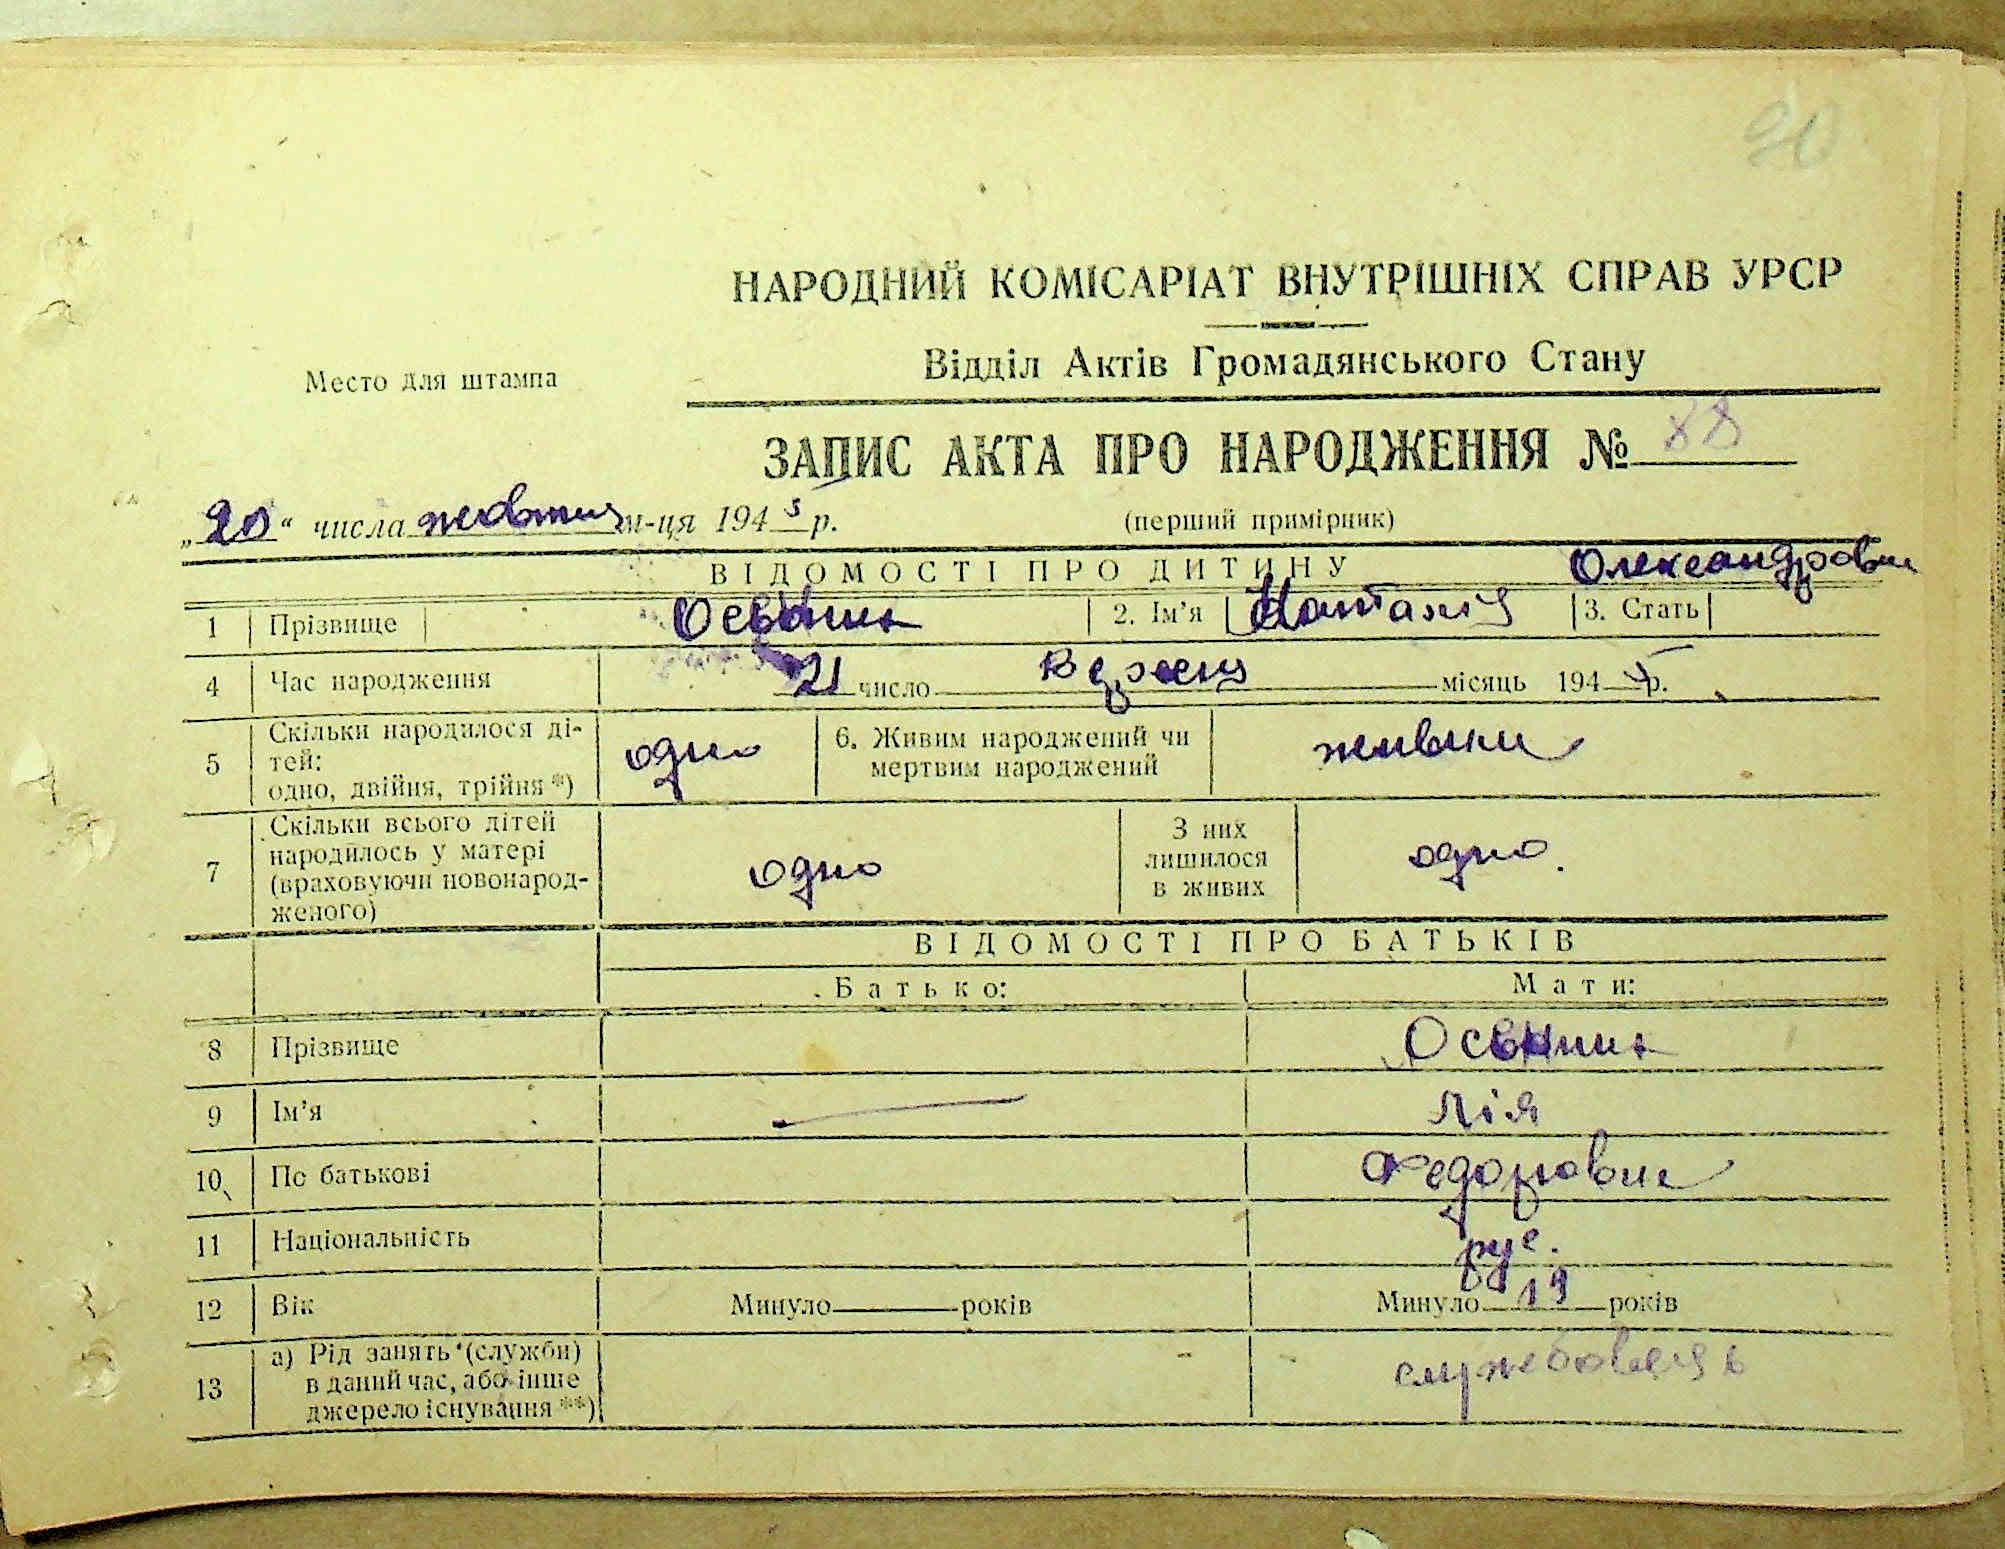 90
НАРОДНИЙ КОМІСАРІАТ ВНУТРІШНІХ СПРАВ УРСР
Відділ Актів Громадянського Стану
Место для штампа
ЗАПИС АКТА ПРО НАРОДЖЕННЯ № 88
„20“ числа жовтня м-ця 1945 р. (перший примірник)
ВІДОМОСТІ ПРО ДИТИНУ Олександровна
1 Прізвище 2. Ім’я Наталія 3. Стать
4 Час народження 21 число Вересня місяць 1945 р.
5 Скільки народилося ді-
тей:
одно, двійня, трійня *) одно 6. Живим народжений чи
мертвим народжений живим
7 Скільки всього дітей
народилось у матері
(враховуючи новонарод-
женого) одно З них
лишилося
в живих одно.
ВІДОМОСТІ ПРО БАТЬКІВ
Батько: Мати:
8 Прізвище
9 Ім’я — Лія
10 По батькові Федоровна
11 Національність рус.
12 Вік Минуло — років Минуло 19 років
13 а) Рід занять (служби)
в даний час, або інше
джерело існування **) службовець